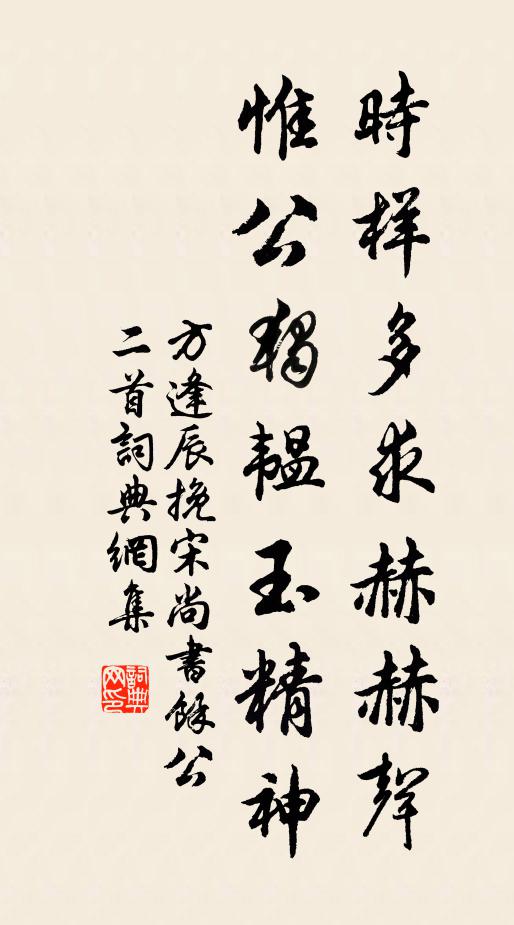 時样多求赫赫聲
惟公獨韞玉精神
方逢辰挽宋尚書餘公
二首詞典網集
詞典
网印